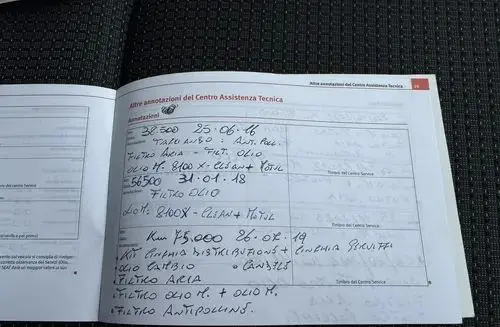 Altre annotazioni del Centro Assistenza Tecnica
Altre annotazioni del Centro Assistenza Tecnica
Annotazioni
38.500 25.06.16
TAGLIANDO: ANTIPOLL.
FILTRO ARIA - FILT. OLIO
OLIO M. 8100 X-CLEAN + MOTUL
Timbro del Centro Service
56500 31.01.18
FILTRO OLIO
OLIO M. 8100X-CLEAN + MOTUL
Timbro del Centro Service
Km 75.000 26.07.19
• KIT CINGHIA DISTRIBUZIONE + CINGHIA SERVIZI
• OLIO CAMBIO • CANDELE
• FILTRO ARIA
Timbro del Centro Service
• FILTRO OLIO M. + OLIO M.
• FILTRO ANTIPOLLINE.